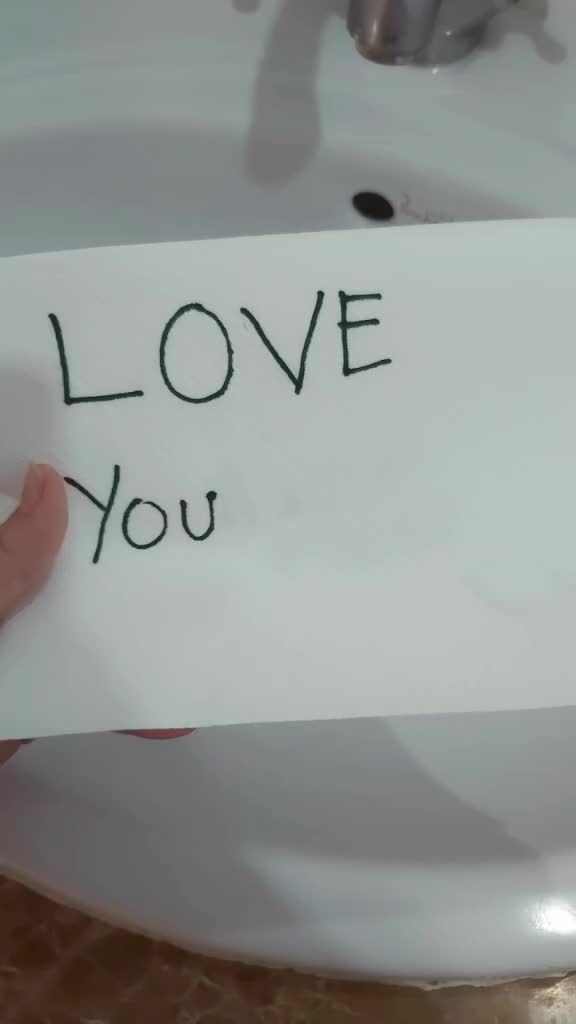 LOVE
You